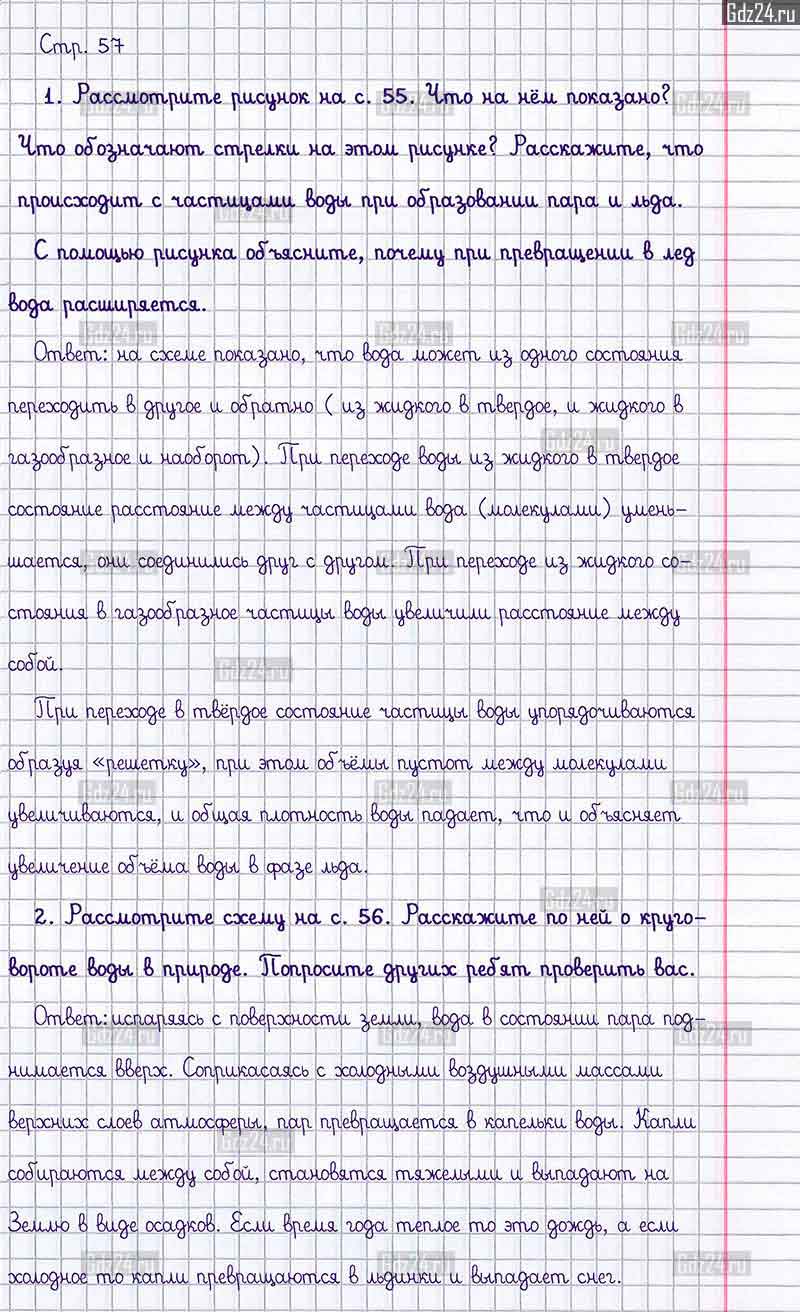 Gdz24.ru
Стр. 57
1. Рассмотрите рисунок на с. 55. Что на нём показано?
Что обозначают стрелки на этом рисунке? Расскажите, что
происходит с частицами воды при образовании пара и льда.
С помощью рисунка объясните, почему при превращении в лед
вода расширяется.
Ответ: на схеме показано, что вода может из одного состояния
переходить в другое и обратно ( из жидкого в твердое, и жидкого в
газообразное и наоборот). При переходе воды из жидкого в твердое
состояние расстояние между частицами вода (молекулами) умень-
шается, они соединились друг с другом. При переходе из жидкого со-
стояния в газообразное частицы воды увеличили расстояние между
собой.
При переходе в твёрдое состояние частицы воды упорядочиваются
образуя «решетку», при этом объёмы пустот между молекулами
увеличиваются, и общая плотность воды падает, что и объясняет
увеличение объёма воды в фазе льда.
2. Рассмотрите схему на с. 56. Расскажите по ней о круго-
вороте воды в природе. Попросите других ребят проверить вас.
Ответ: испаряясь с поверхности земли, вода в состоянии пара под-
нимается вверх. Соприкасаясь с холодными воздушными массами
верхних слоев атмосферы, пар превращается в капельки воды. Капли
собираются между собой, становятся тяжелыми и выпадают на
Землю в виде осадков. Если время года теплое то это дождь, а если
холодное то капли превращаются в льдинки и выпадает снег.